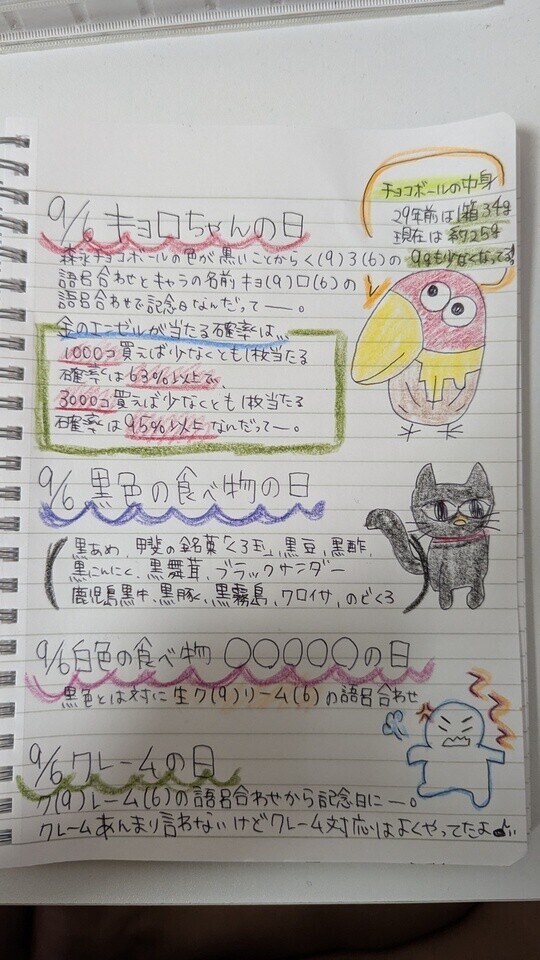 チョコボールの中身
29年前は1箱34g
現在は約25g
9gも少なくなってる!
9/6 キョロちゃんの日
森永チョコボールの色が黒いことからく(9)3(6)の
語呂合わせとキャラの名前キョ(9)ロ(6)の
語呂合わせで記念日なんだってー。
金のエンゼルが当たる確率は…
1000コ買えば少なくとも1枚当たる
確率は63%以上で、
3000コ買えば少なくとも1枚当たる
確率は95%以上なんだってー。
9/6 黒色の食べ物の日
(黒あめ、甲斐の銘菓「くろ玉」、黒豆、黒酢、
黒にんにく、黒舞茸、ブラックサンダー
鹿児島黒牛、黒豚、黒霧島、クロイサ、のどぐろ)
9/6 白色の食べ物 〇〇〇〇〇の日
黒色とは対に生ク(9)リーム(6)の語呂合わせ
9/6 クレームの日
ク(9)レーム(6)の語呂合わせから記念日にー。
クレームあんまり言わないけどクレーム対応はよくやってたよ